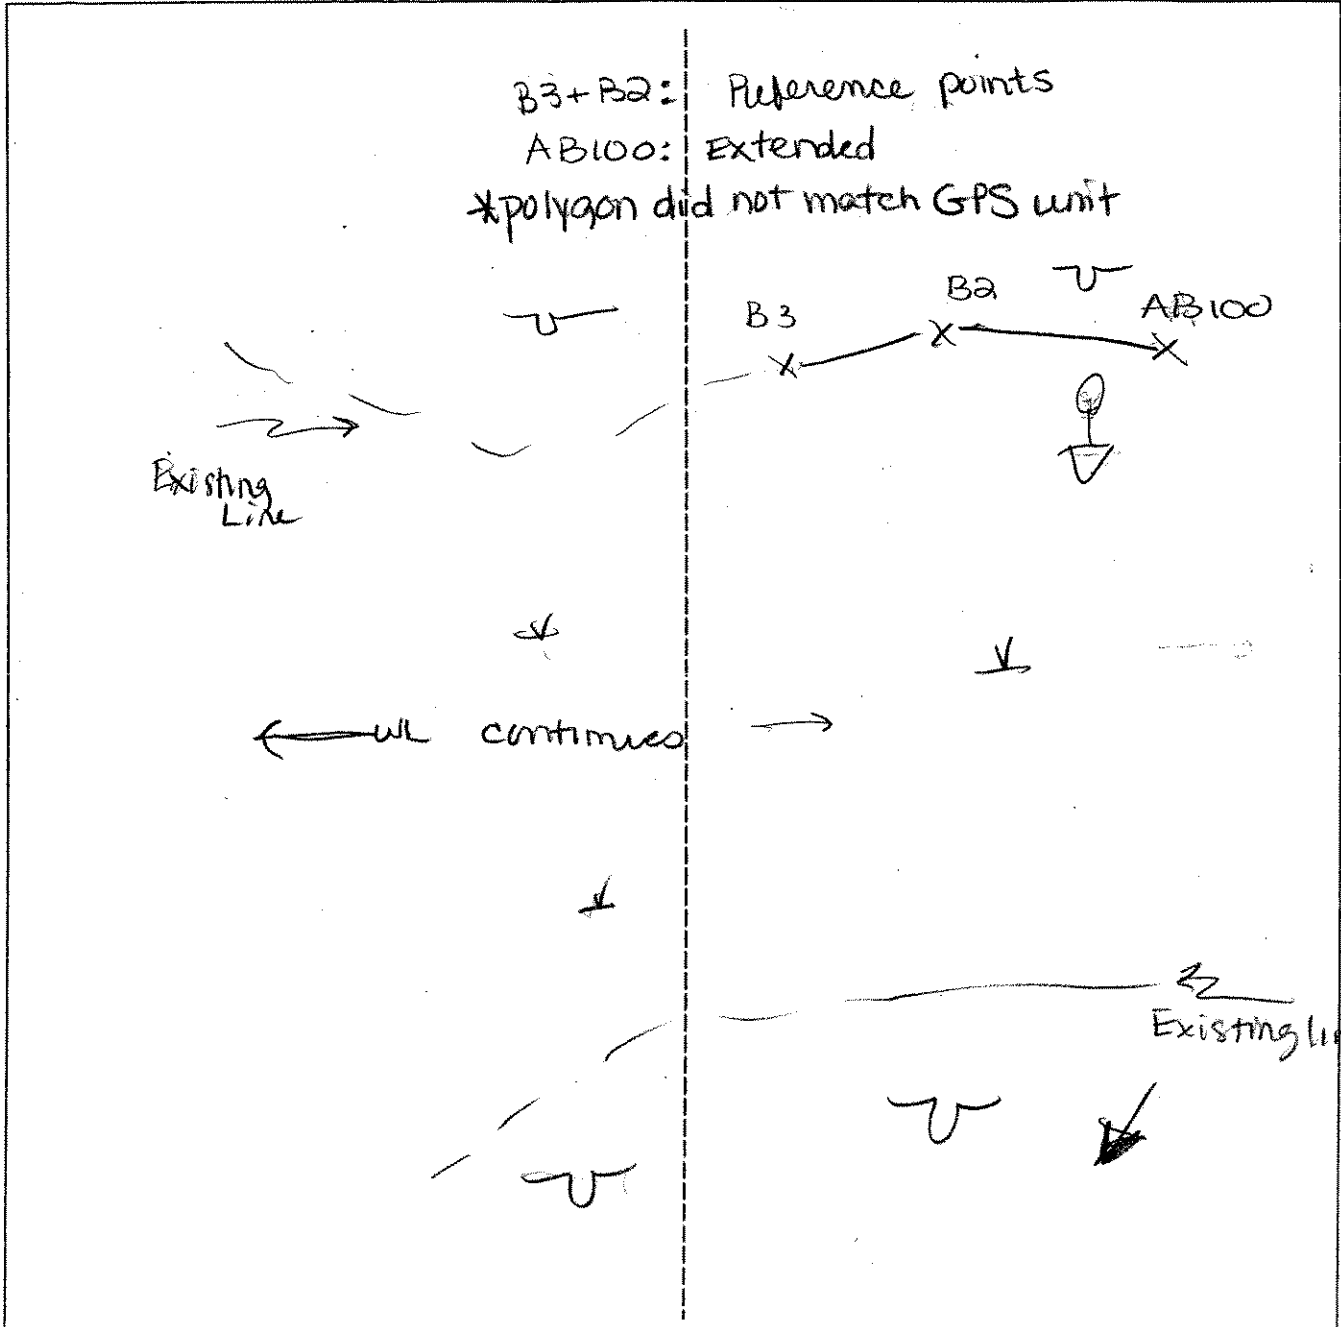 B3+B2: Reference points
AB100: Extended
*polygon did not match GPS unit
B3
B2
AB100
Existing
Line
WL continues
Existing li